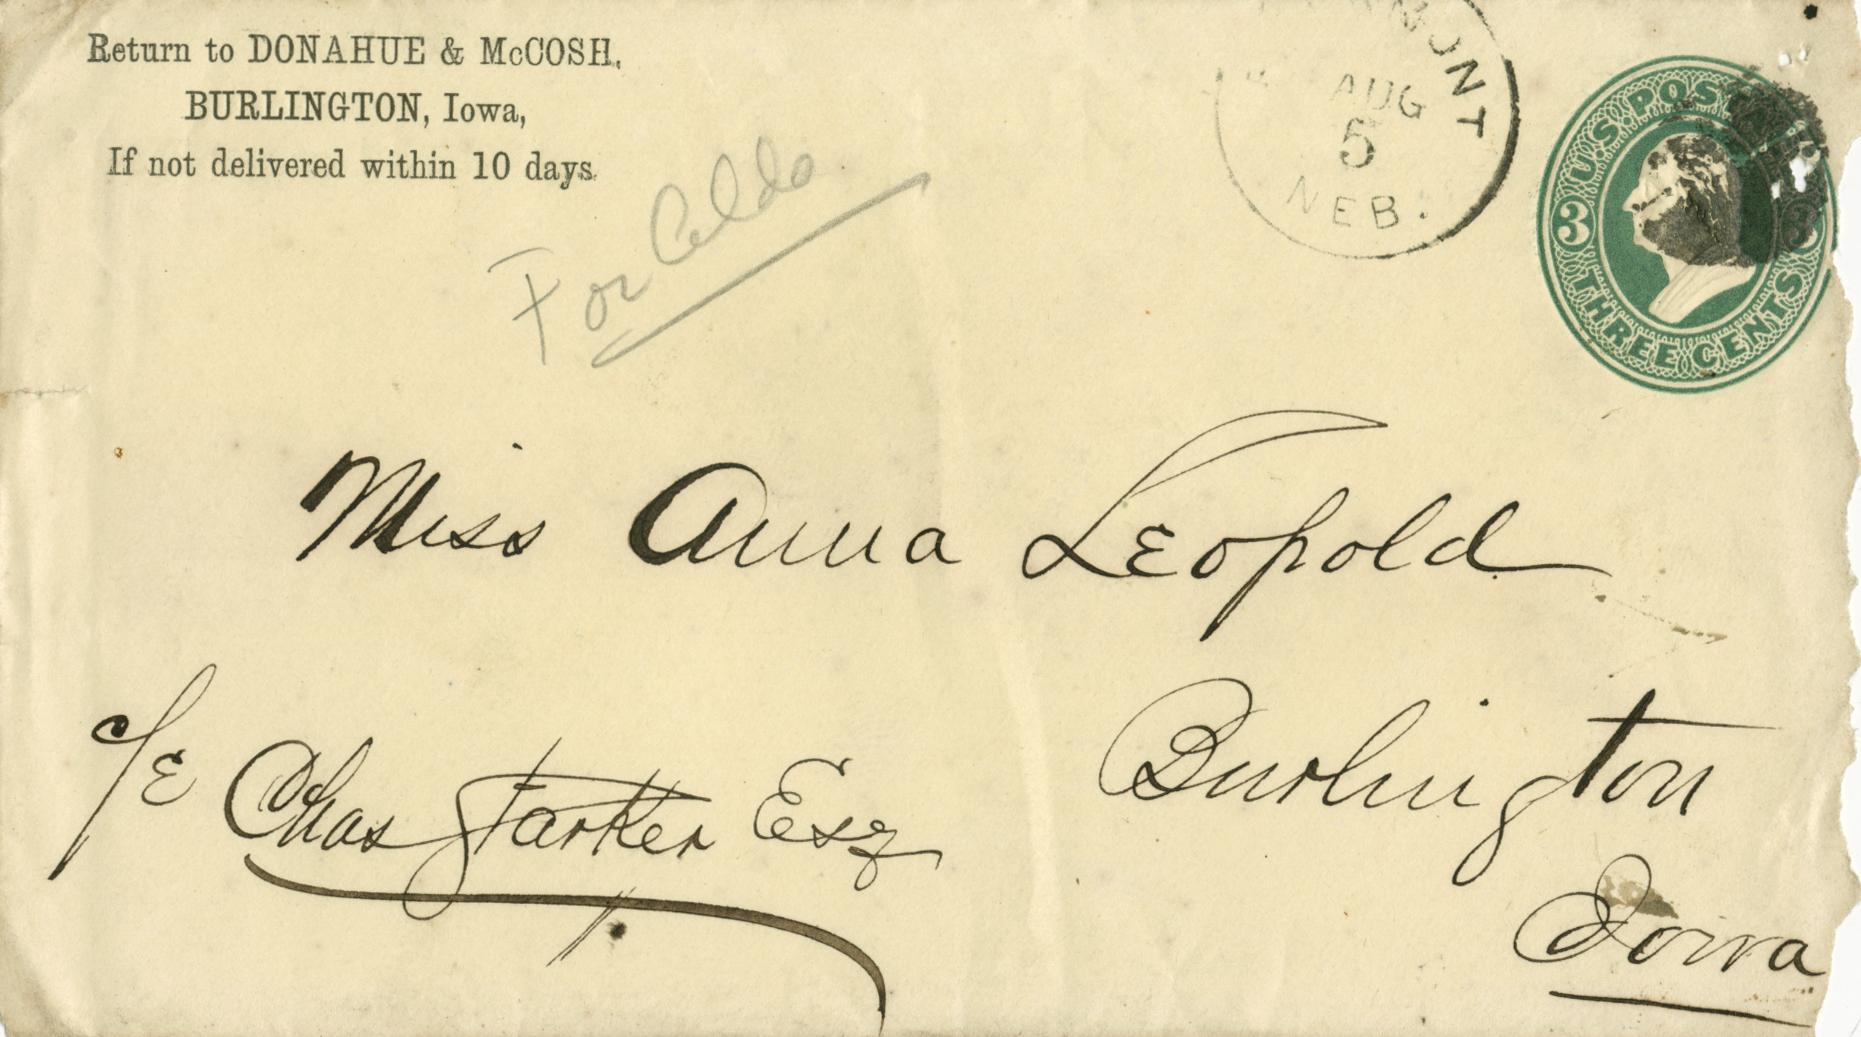 Return to DONAHUE & McCOSH,
BURLINGTON, Iowa,
If not delivered within 10 days.
MONT
AUG
5
NEB.
U.S. POSTAGE
3 3
THREE CENTS
For
Miss Anna Leopold
c/e Chas Starker Esq
Burlington
Iowa